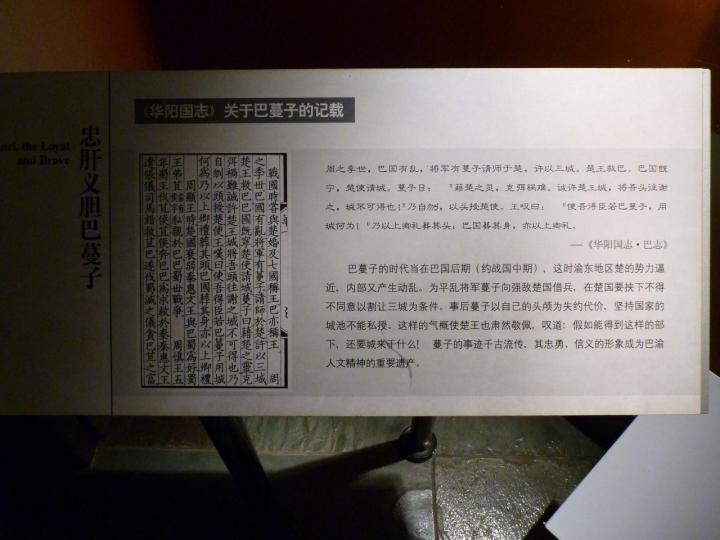 nzi, the Loyal
and Brave
忠肝义胆巴蔓子
《华阳国志》关于巴蔓子的记载
戰國時嘗與楚婚及七國稱王巴亦稱王　周
之季世巴國有亂將軍有蔓子請師於楚許以三城
楚王救巴巴國既寧楚使請城蔓子曰藉楚之靈克
弭禍難誠許楚王城將吾頭往謝之城不可得也乃
自刎以頭授楚使王嘆曰使吾得臣若巴蔓子用城
何為乃以上卿禮葬其頭巴國葬其身亦以上卿禮
周顯王時楚國衰弱秦惠文王與巴蜀為好蜀
王弟苴侯私親於巴巴蜀世戰爭　周慎王五
年蜀王伐苴侯苴侯奔巴巴為求救於秦秦惠文王
遣張儀司馬錯救苴巴遂伐蜀滅之儀貪巴苴之富
周之季世，巴国有乱，将军有蔓子请师于楚，许以三城。楚王救巴。巴国既
宁，楚使请城。蔓子曰：“藉楚之灵，克弭祸难。诚许楚王城，将吾头往谢
之，城不可得也！”乃自刎，以头授楚使。王叹曰：“使吾得臣若巴蔓子，用
城何为！”乃以上卿礼葬其头；巴国葬其身，亦以上卿礼。
—《华阳国志·巴志》
巴蔓子的时代当在巴国后期（约战国中期），这时渝东地区楚的势力逼
近，内部又产生动乱。为平乱将军蔓子向强敌楚国借兵，在楚国要挟下不得
不同意以割让三城为条件。事后蔓子以自己的头颅为失约代价，坚持国家的
城池不能私授。这样的气概使楚王也肃然敬佩，叹道：假如能得到这样的部
下，还要城来干什么！ 蔓子的事迹千古流传，其忠勇、信义的形象成为巴渝
人文精神的重要遗产。